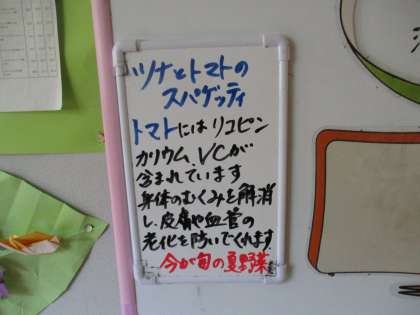 ツナとトマトの
スパゲッティ
トマトにはリコピン
カリウム、VCが
含まれています
身体のむくみを解消
し、皮膚や血管の
老化を防いでくれます
今が旬の夏野菜